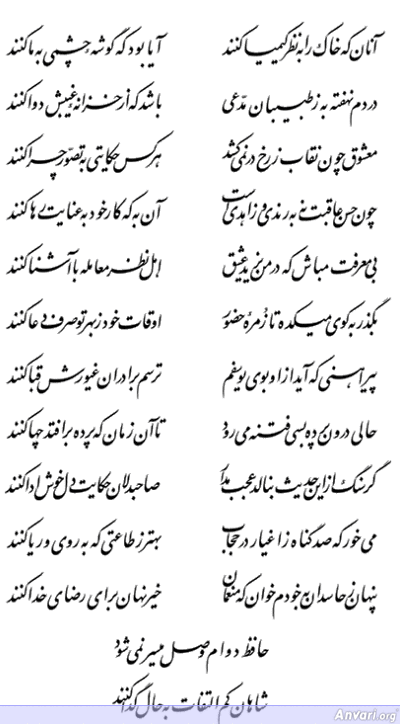 آنان که خاک را به نظر کیمیا کنند آیا بود که گوشه چشمی به ما کنند
دردم نهفته به ز طبیبان مدّعی باشد که از خزانه غیبش دوا کنند
معشوق چون نقاب ز رخ در نمی‌کشد هر کس حکایتی به تصور چرا کنند
چون حسن عاقبت نه به رندی و زاهدی است آن به که کار خود به عنایت رها کنند
بی معرفت مباش که در من یزید عشق اهل نظر معامله با آشنا کنند
بگذر به کوی میکده تا زُمره حضور اوقات خود ز بهر تو صرف دعا کنند
پیراهنی که آید از او بوی یوسفم ترسم برادران غیورش قبا کنند
حالی درون پرده بسی فتنه می رود تا آن زمان که پرده برافتد چها کنند
گر سنگ از این حدیث بنالد عجب مدار صاحبدلان حکایت دل خوش ادا کنند
می خور که صد گناه ز اغیار در حجاب بهتر ز طاعتی که به روی و ریا کنند
پنهان ز حاسدان به خودم خوان که منعمان خیر نهان برای رضای خدا کنند
حافظ دوام وصل میسر نمی شود
شاهان کم التفات به حال گدا کنند
Anvari.org